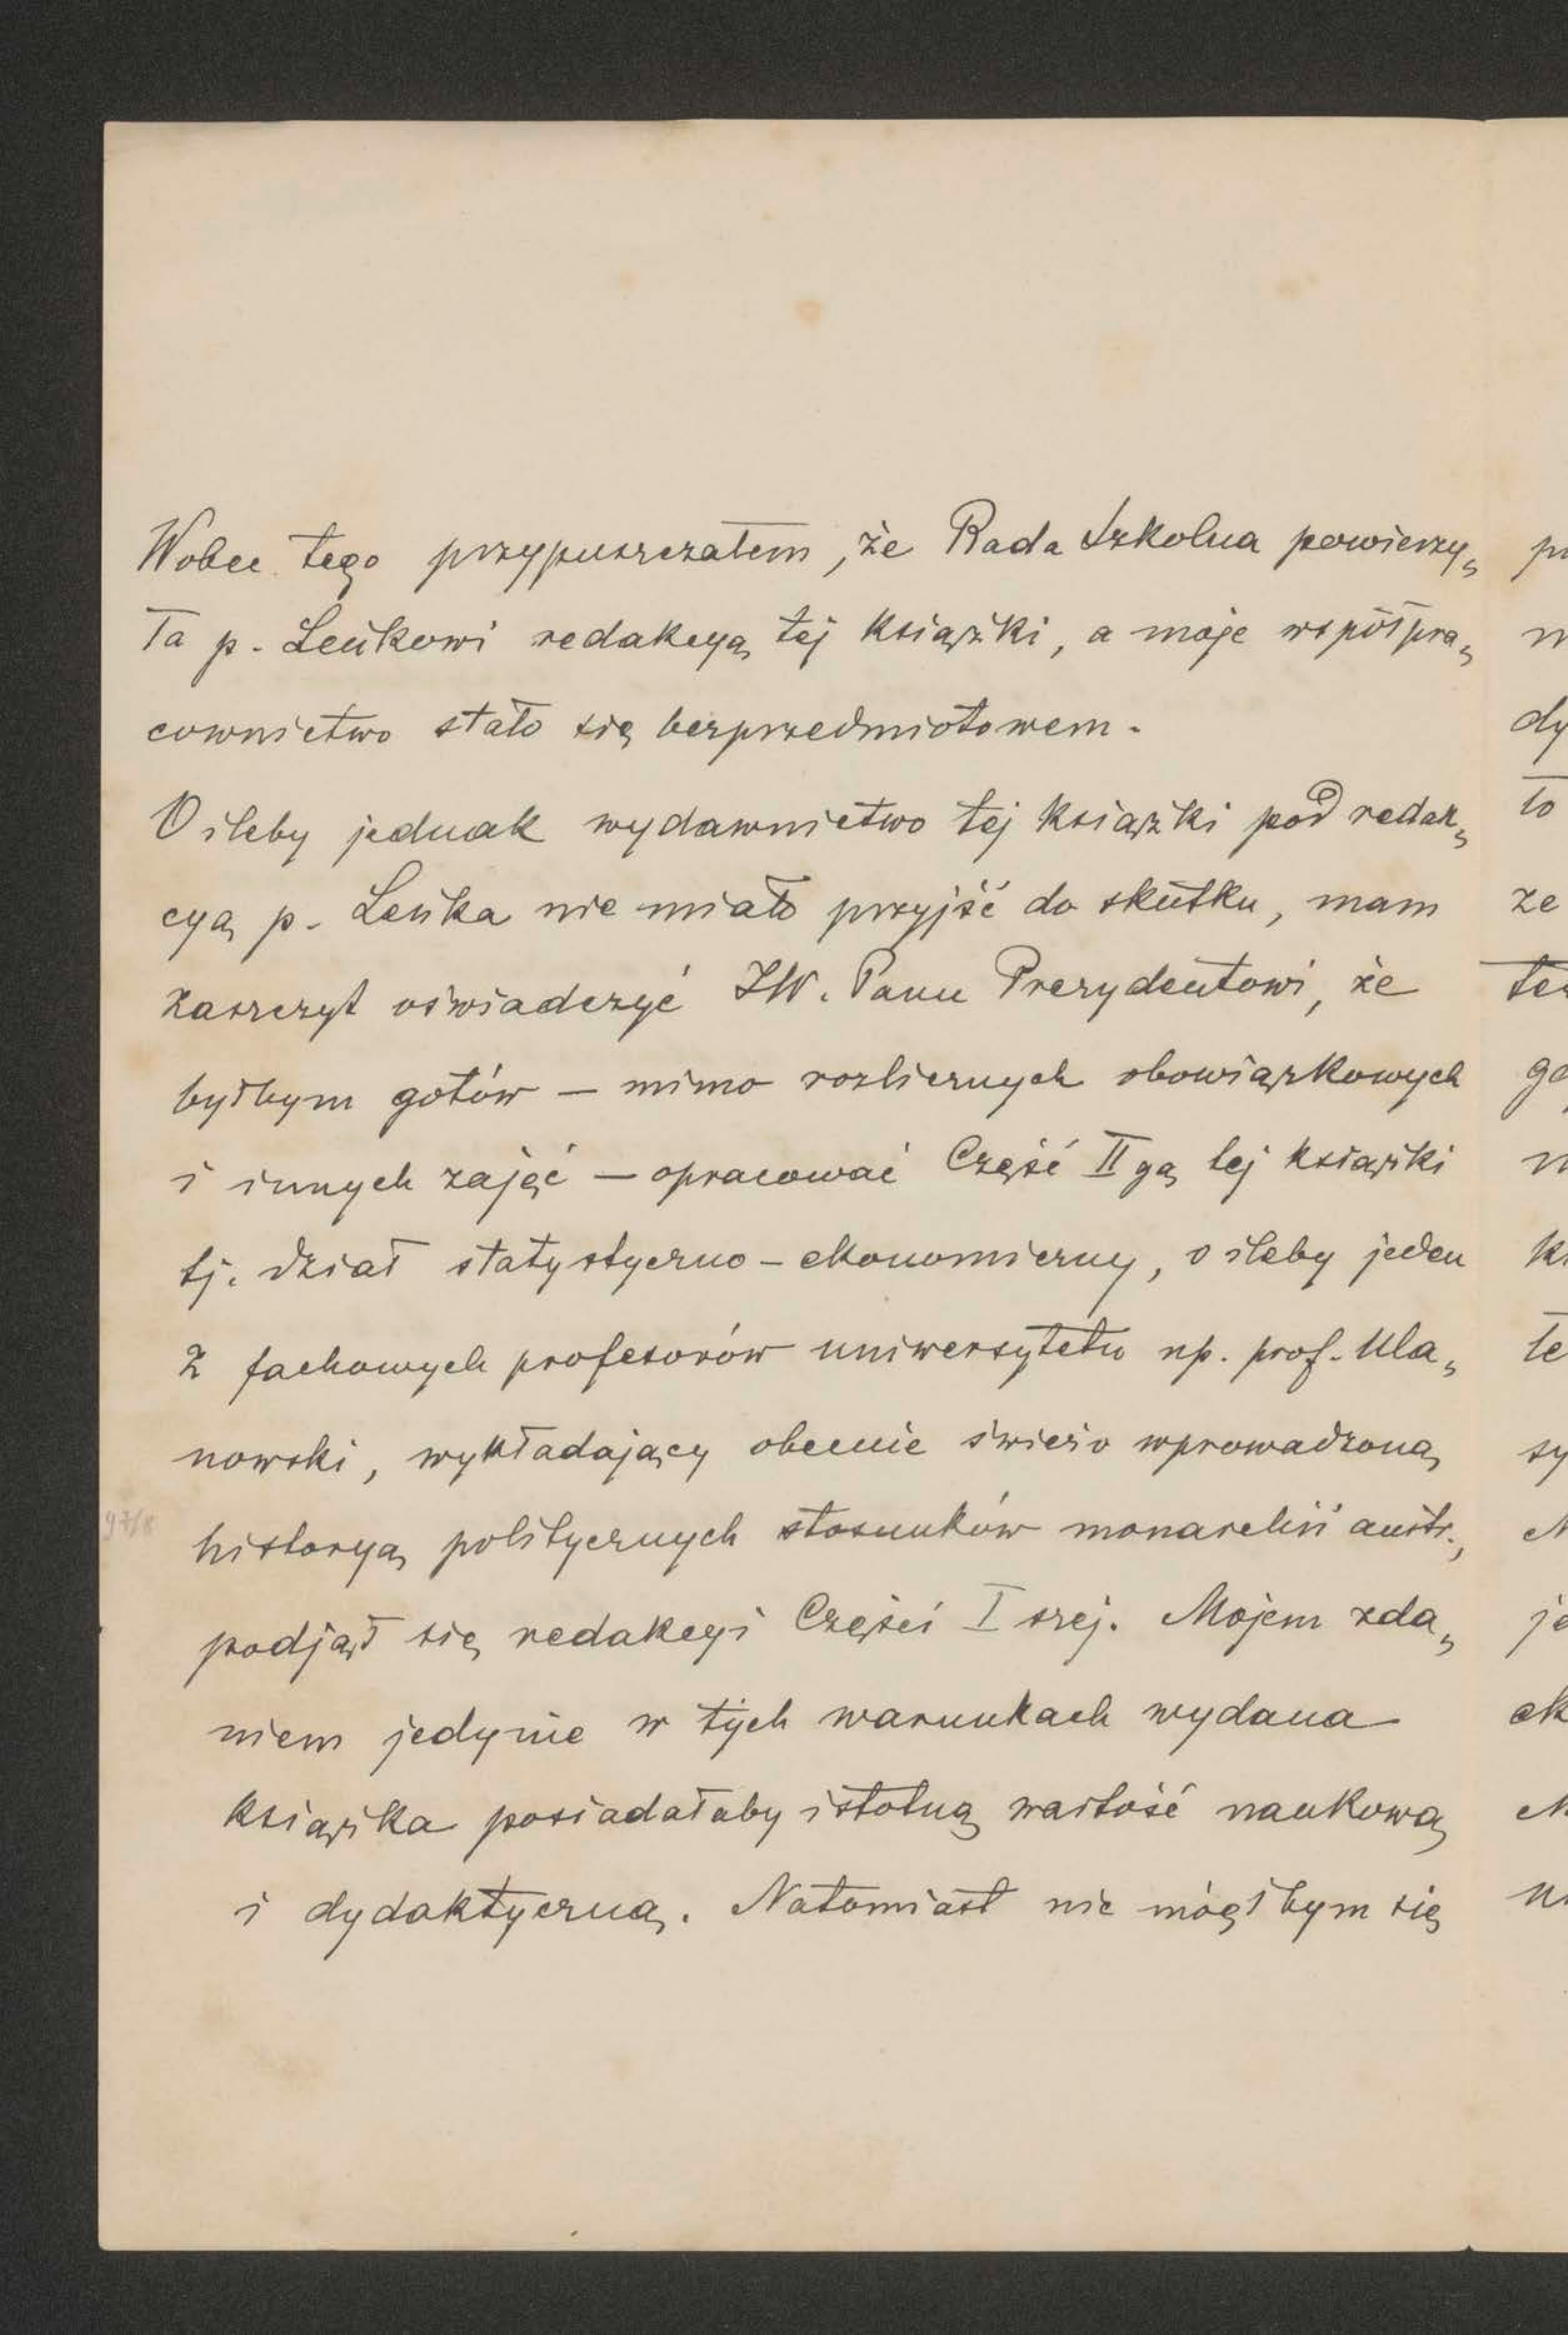 Wobec tego przypuszczałem, że Rada Szkolna powierzy„
ła p. Leńkowi redakcyą tej książki, a moje współpra„
cownictwo stało się bezprzedmiotowem.
O ileby jednak wydawnictwo tej książki pod redak„
cyą p. Leńka nie miało przyjść do skutku, mam
zaszczyt oświadczyć JW. Panu Prezydentowi, że
byłbym gotów – mimo rozlicznych obowiązkowych
i innych zajęć – opracować Część II gą tej książki
tj. dział statystyczno-ekonomiczny, o ileby jeden
z fachowych profesorów uniwersytetu np. prof. Ula„
nowski, wykładający obecnie świeżo wprowadzoną
historyą politycznych stosunków monarchii austr.,
podjął się redakcyi Części I szej. Mojem zda„
niem jedynie w tych warunkach wydana
książka posiadałaby istotną wartość naukową
i dydaktyczną. Natomiast nie mógłbym się